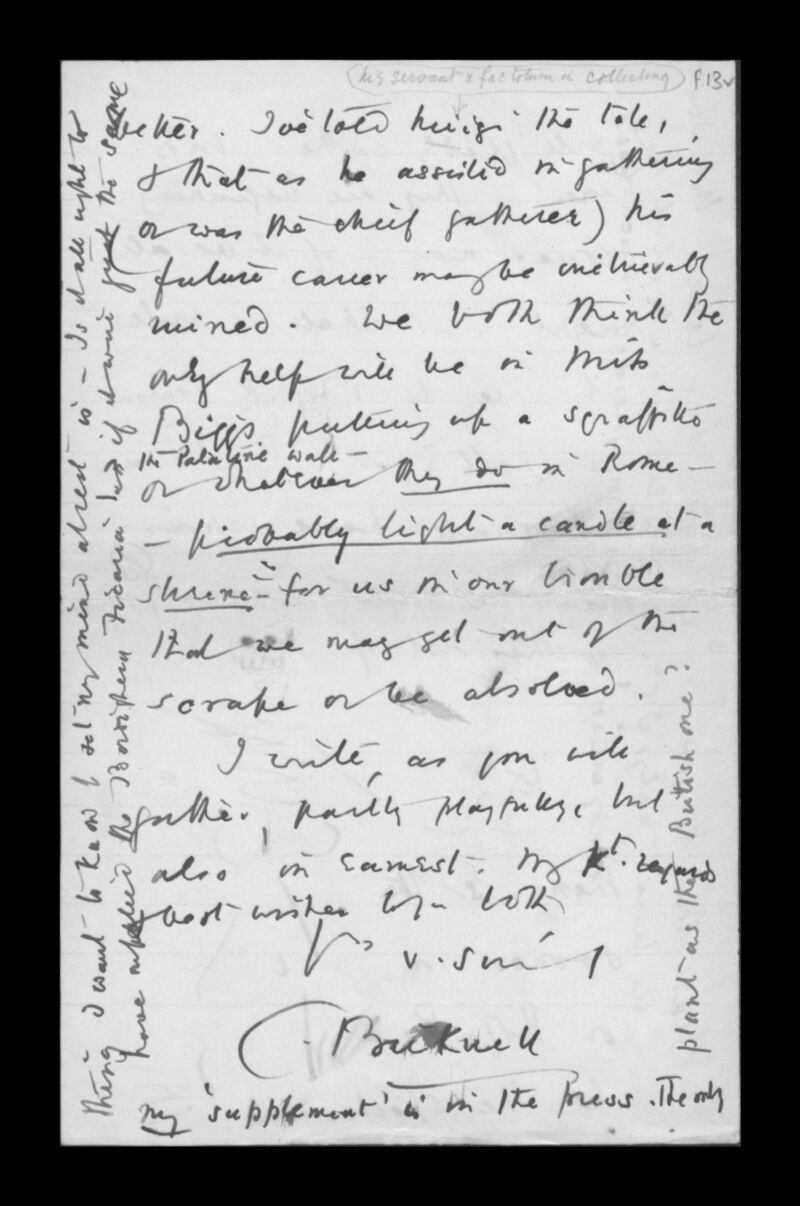 (his servant & factotum in collecting) f.13v
better. I've told Luigi the tale,
& that as he assisted in gathering
(or was the chief gatherer) his
future career may be irretrievably
ruined. We both think the
only help will be in Miss
Biggs putting up a sgraffitto
the Palatine wall -
or whatever they do in Rome -
- probably light a candle at a
shrine - for us in our trouble
that we may get out of the
scrape or be absolved.
I write, as you will
gather, partly playfully, but
also in earnest. My kt. regards
& best wishes to you both
Yrs v. sincy
C. Bicknell
my 'supplement' is in the press. The only
thing I want to know & set my mind at rest is - Is it all right to
have the Bordighera Ficaria just as if it were the same
plant as the British one?